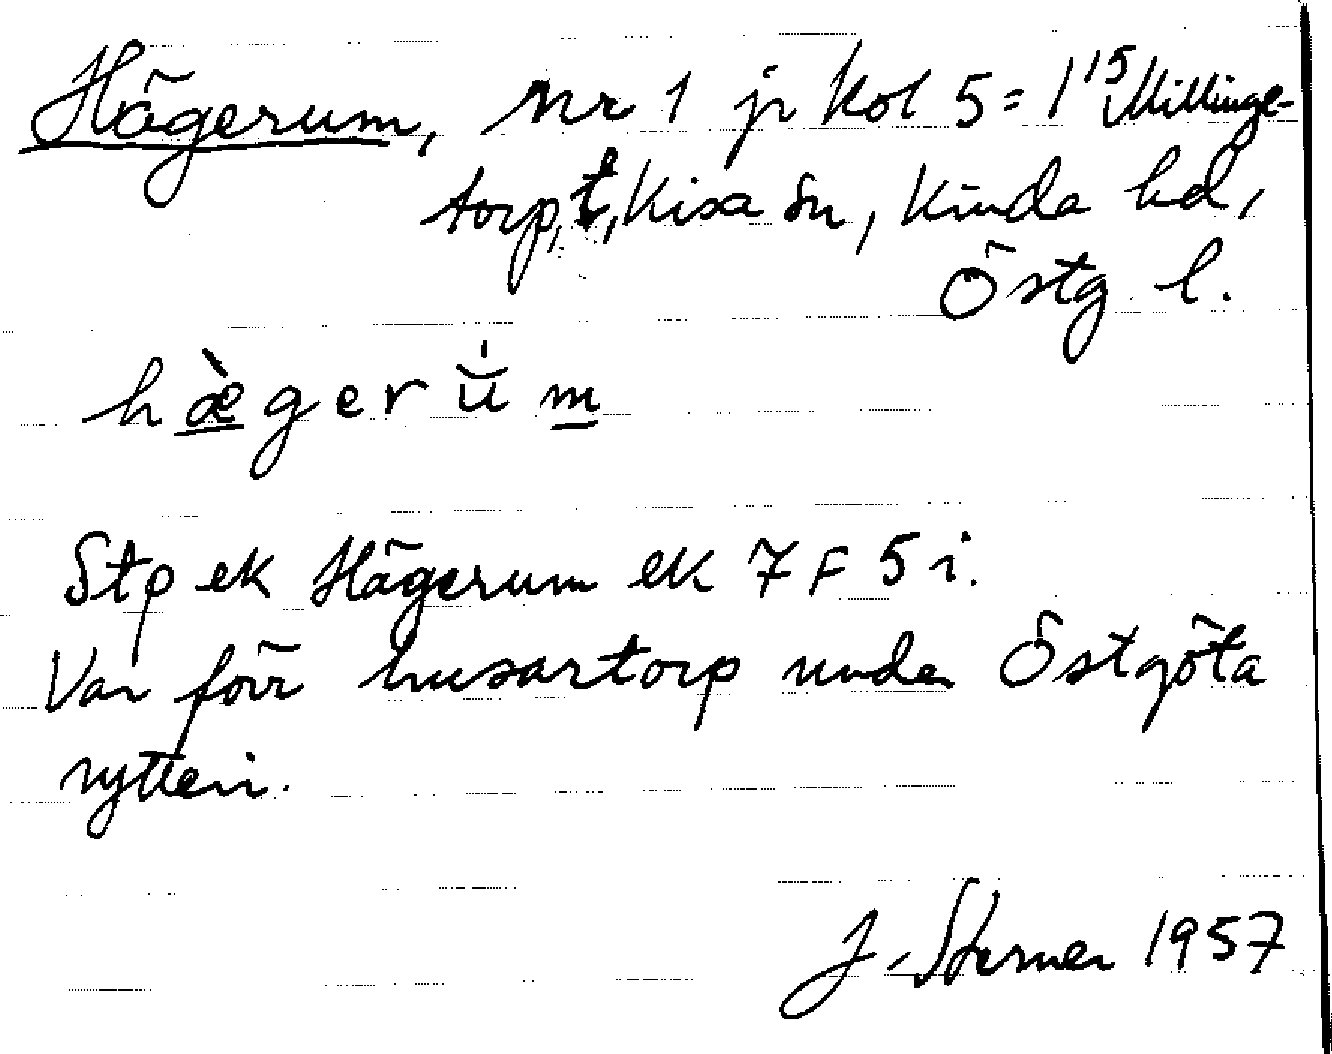 Hägerum, Nr 1 jr kol 5 = 1¹⁵ Millinge-
torp, t, Kisa sn, Kinda hd,
Östg. l.
hæ̀gerúm
Stp ek Hägerum ek 7 F 5 i.
Var förr husartorp under Östgöta
rytteri.
J. Sterner 1957